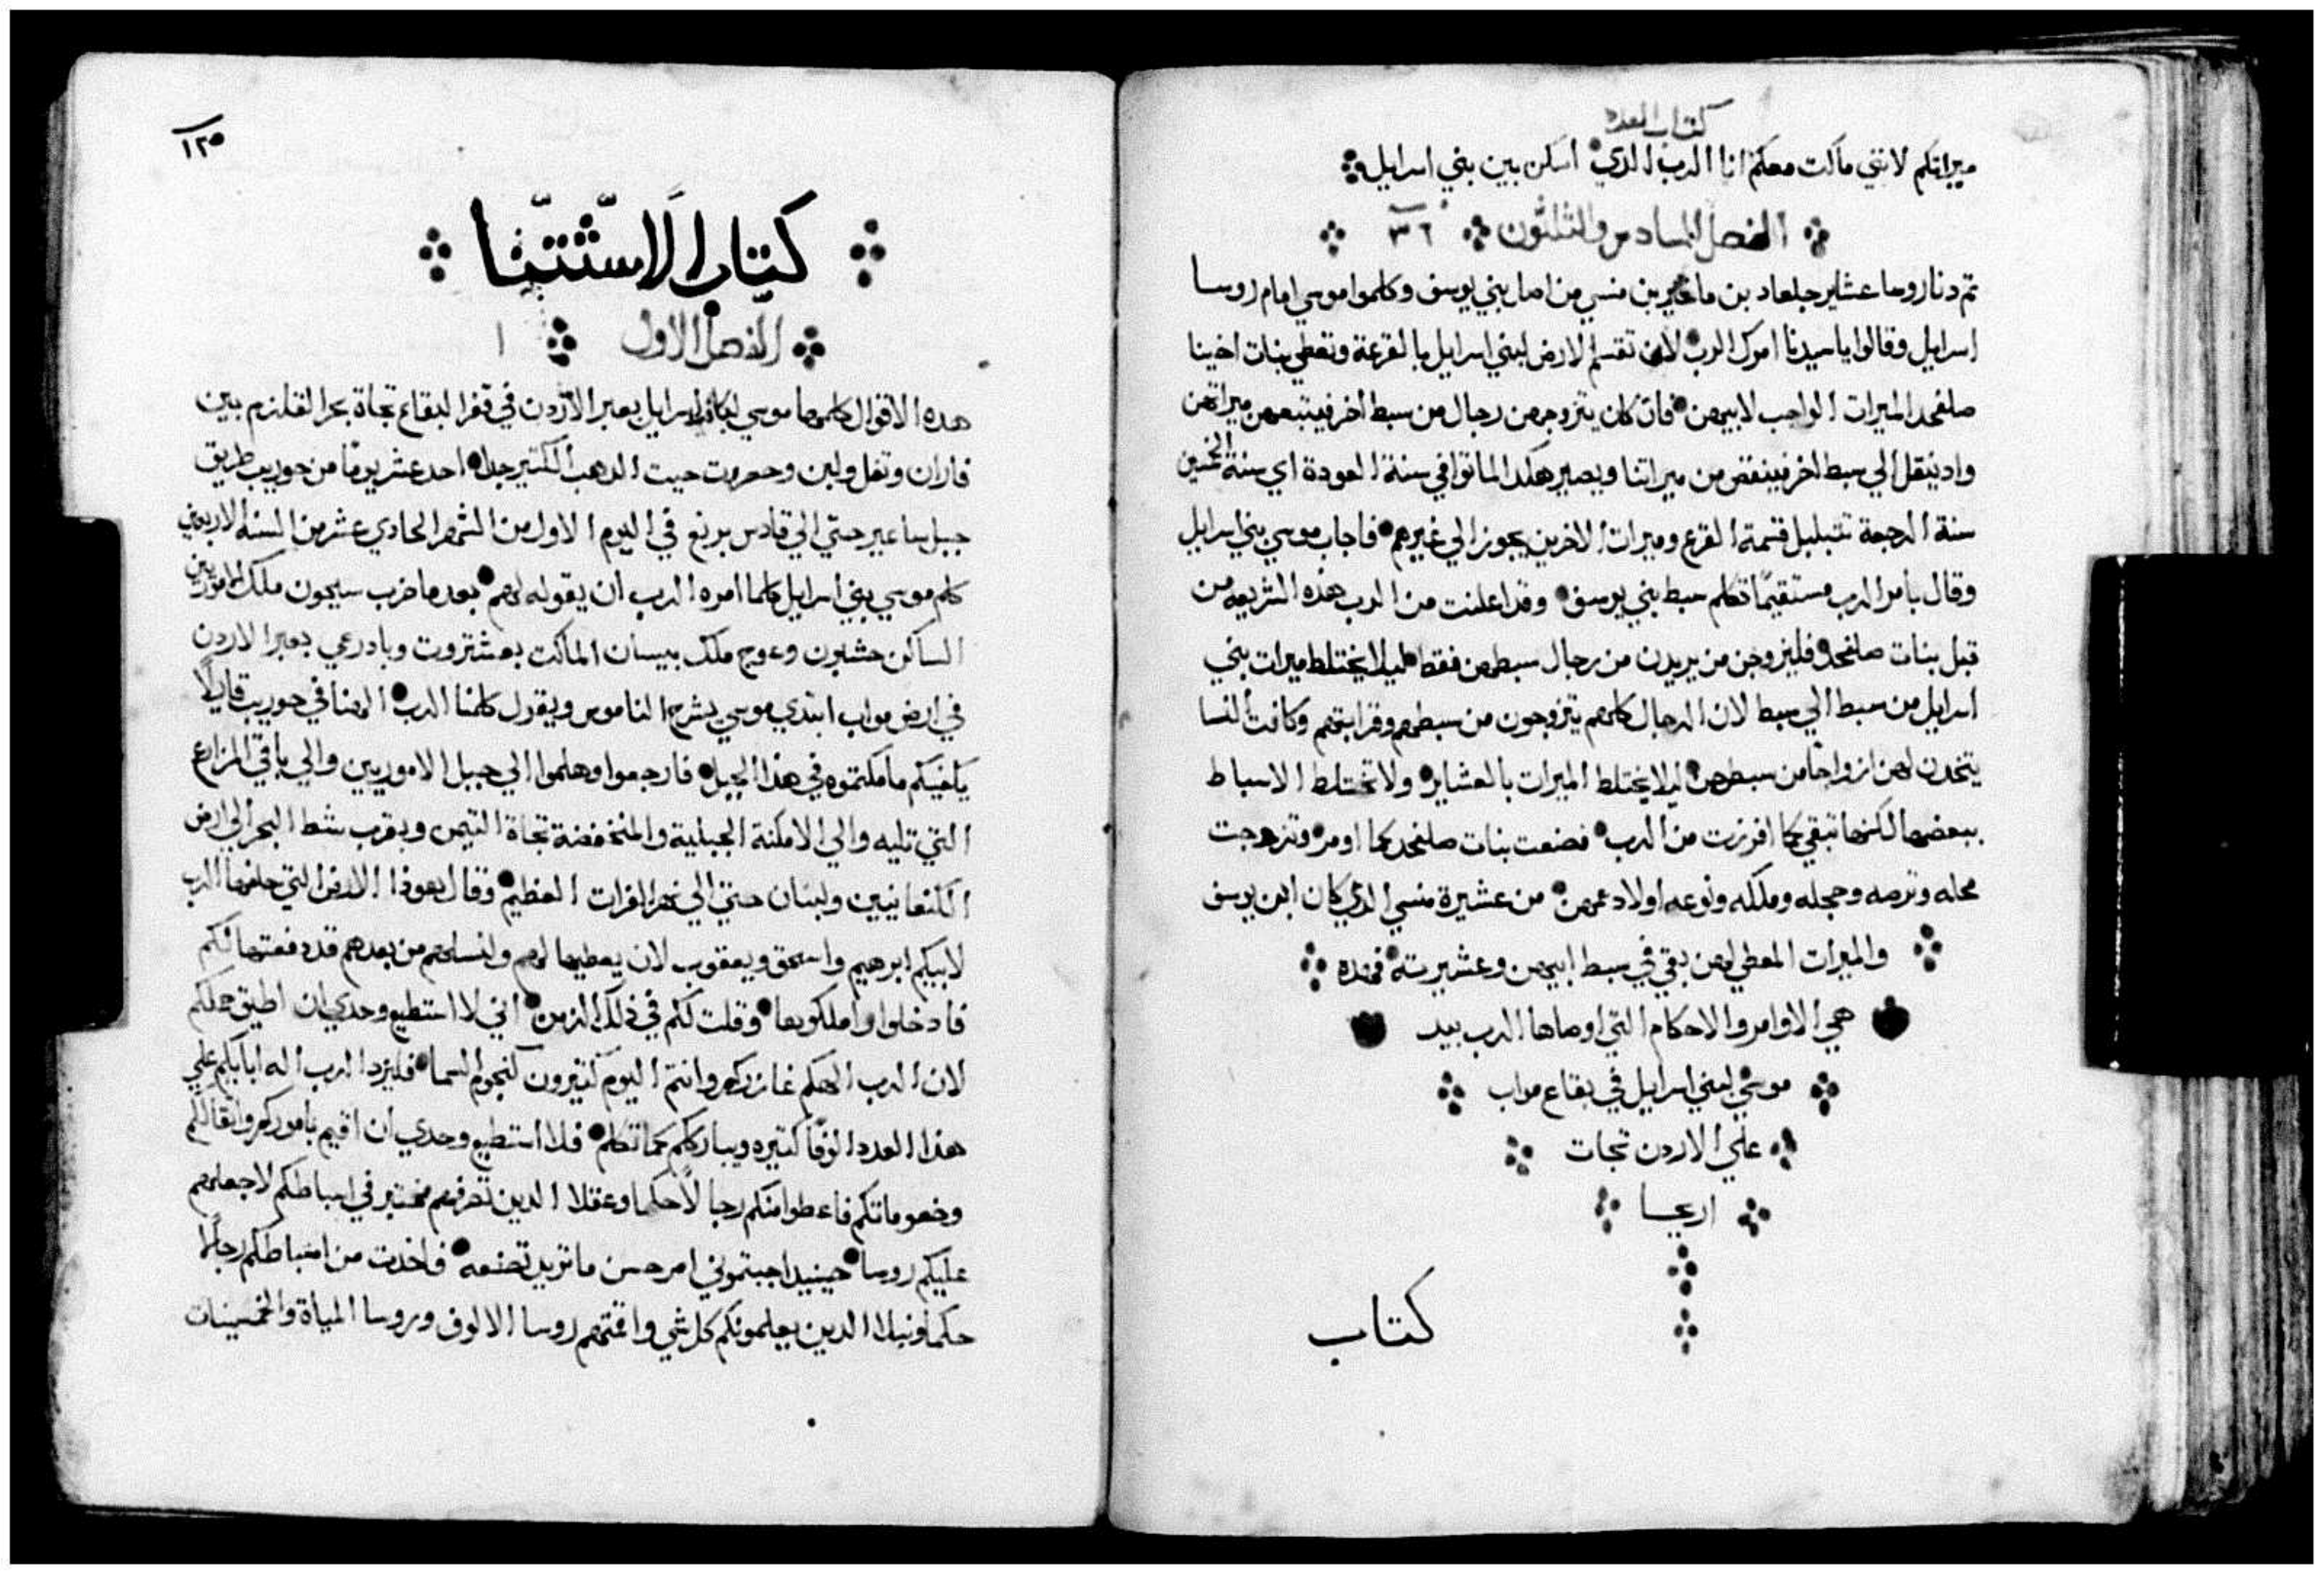 كتاب العدد
ميراتكم لانني ماكت معكم انا الرب الدي اسكن بين بني اسرايل
الفصل السادس والثلثون ٣٦
تم دنا روسا عشاير جلعاد بن ماخير بن منسي من اصل بني يوسف وكلموا موسي امام روسا
اسرايل وقالوا يا سيدنا امرك الرب لان تقسم الارض لبني اسرايل بالقرعة وتعطي بنات اخينا
صلفحد الميرات الواجب لابيهن فان كان يتزوجهن رجال من سبط اخر فيتبعهن ميراتهن
واد ينتقل الي سبط اخر فينقص من ميراتنا ويصير هكدا اذا ما توافي سنة العودة اي سنة الخمسين
سنة الرجعة تتبلبل قسمة القرع وميرات الاخرين يجوز الي غيرهم فاجاب موسي بني اسرايل
وقال بامر الرب مستقيمًا تكلم سبط بني يوسف وقد اعلنت من الرب هذه الشريعه من
قبل بنات صلفحد فليتزوجن من يريدن من رجال سبطهن فقط ليلا يختلط ميرات بني
اسرايل من سبط الي سبط لان الرجال كلهم يتزوجون من سبطهم وقرابتهم وكافت النسا
يتخدن لهن ازواجًا من سبطهن ليلا يختلط الميرات بالعشاير ولا تختلط الاسباط
ببعضها لكنها تبقي كما افرزت من الرب فصنعت بنات صلفحد كما اومر وتزوجت
محله وترصه وحجله وملكه ونوعه اولاد عمهن من عشيرة منسي الدي كان ابن يوسف
والميرات المعطي لهن بقي في سبط ابيهن وعشيرته فهده
هي الاوامر والاحكام التي اوصاها الرب بيد
موسي لبني اسرايل في بقاع مواب
علي الاردن تجات
اريحا
كتاب
١٢٥
كتاب الاستثنا
الفصل الاول ١
هده الاقوال كلمها موسي لكافة اسرايل بعبر الاردن في قفر البقاع تجاة بحر القلزم بين
فاران وتفل ولبن وحصروت حيت الدهب الكتير جدا احد عشر يومًا من حوريب طريق
جبل ساعير حتي الي قادس برنع في اليوم الاول من الشهر الحادي عشر من السنه الاربعين
كلم موسي بني اسرايل كلما امره الرب ان يقوله لهم بعد ما ضرب سيحون ملك الاموريين
الساكن حشبون وعوج ملك بيسان الماكت بعشتروت وبادرعي بعبر الاردن
في ارض مواب ابتدي موسي يشرح الناموس ويقول كلمنا الرب الهنا في حوريب قايلًا
يكفيكم ما مكتموه في هذا الجبل فارجعوا وهلموا الي جبل الاموريين والي باقي المزارع
التي تليه والي الامكنة الجبلية والمنخفضة تجاة التيمن وبقرب شط البحر الي ارض
الكنعانيين ولبنان حتي الي نهر الفرات العظيم وقال هوذا الارض التي حلفها الرب
لابيكم ابرهيم واسحق ويعقوب لان يعطيها لهم ولنسلهم من بعدهم قد دفعتها لكم
فادخلوا واملكوها وقلت لكم في ذلك الزمن اني لا استطيع وحدي ان اطيق حملكم
لان الرب الهكم غازركم وانتم اليوم كتيرون كنجوم السما فليزد الرب اله ابايكم علي
هذا العدد الوفًا كتيره ويبارككم كما تكلم فلا استطيع وحدي ان اقيم باموركم واتقالكم
وخصوماتكم فاعطوا منكم رجالًا حكما وعقلا الدين تصرفهم مختبر في اسباطكم لاجعلهم
عليكم روسا حينيد اجبتموني امر حسن ما تريد تصنعه فاخدت من اسباطكم رجالًا
حكما ونبلا الدين يعلمونكم كل شي واقمتهم روسا الالوف وروسا المياة والخمسينات